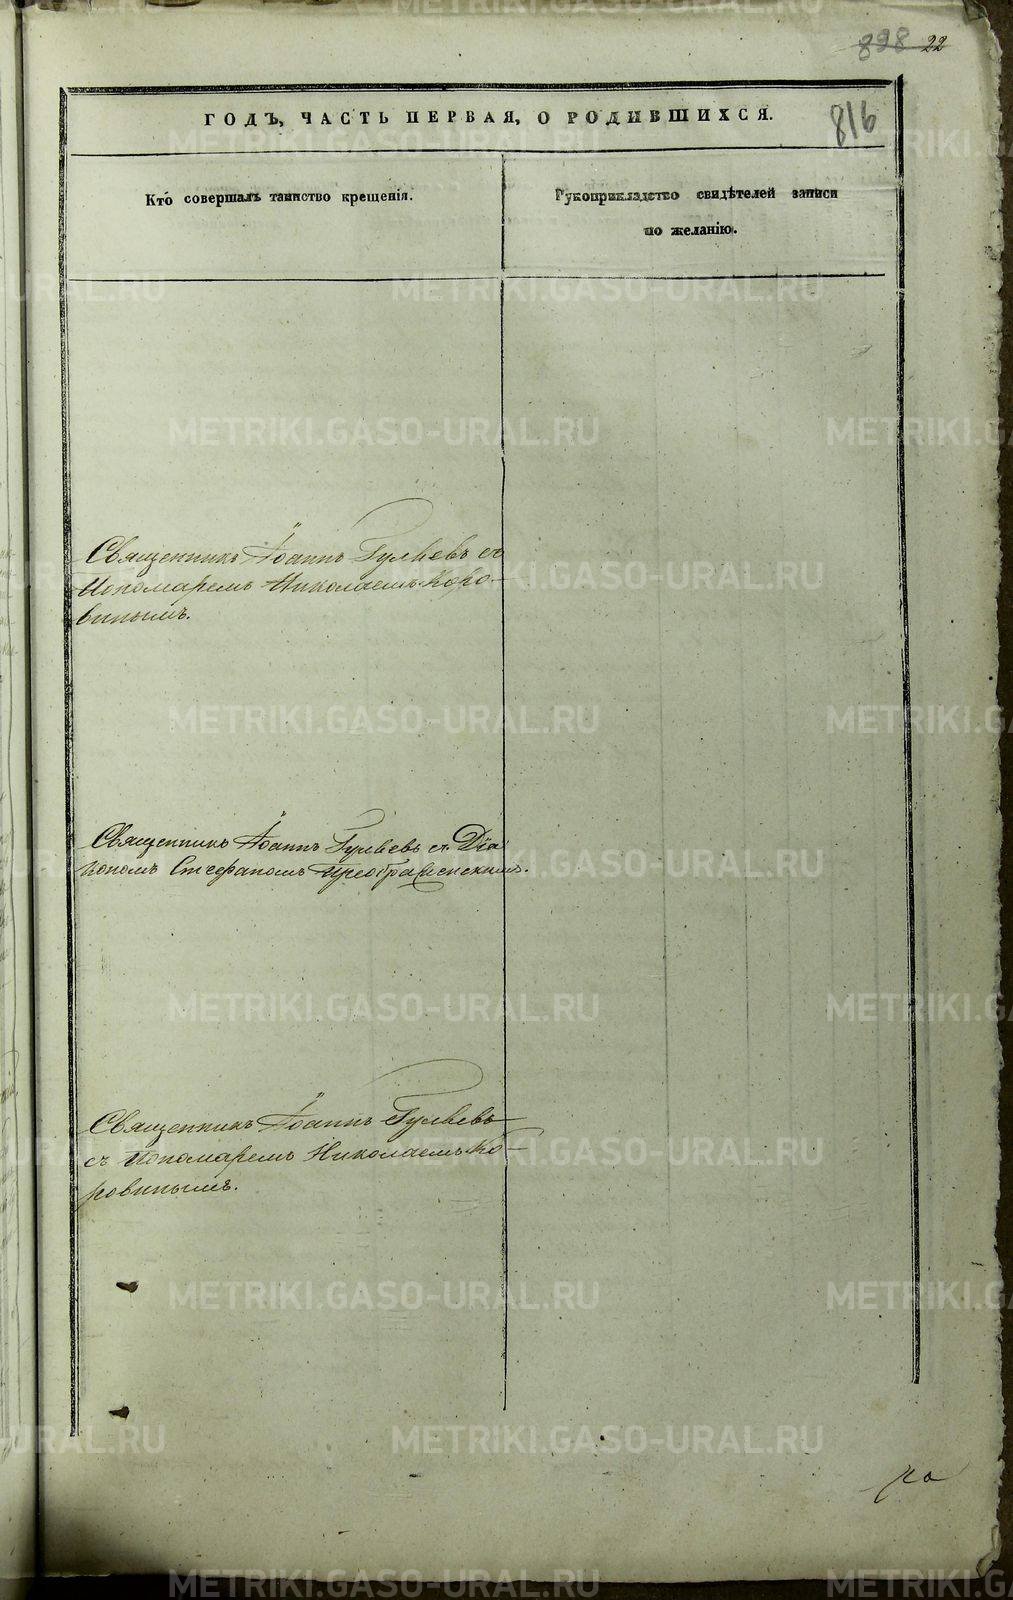 828 22
ГОДЪ, ЧАСТЬ ПЕРВАЯ, О РОДИВШИХСЯ.
816
Кто совершалъ таинство крещенія.
Рукоприкладство свидѣтелей записи
по желанію.
Священникъ Іоаннъ Гуляевъ съ
Пономаремъ Николаемъ Коро-
винымъ.
Священникъ Іоаннъ Гуляевъ съ Діа
кономъ Стефаномъ Преображенскимъ.
Священникъ Іоаннъ Гуляевъ
съ Пономаремъ Николаемъ Ко-
ровинымъ.
METRIKI.GASO-URAL.RU